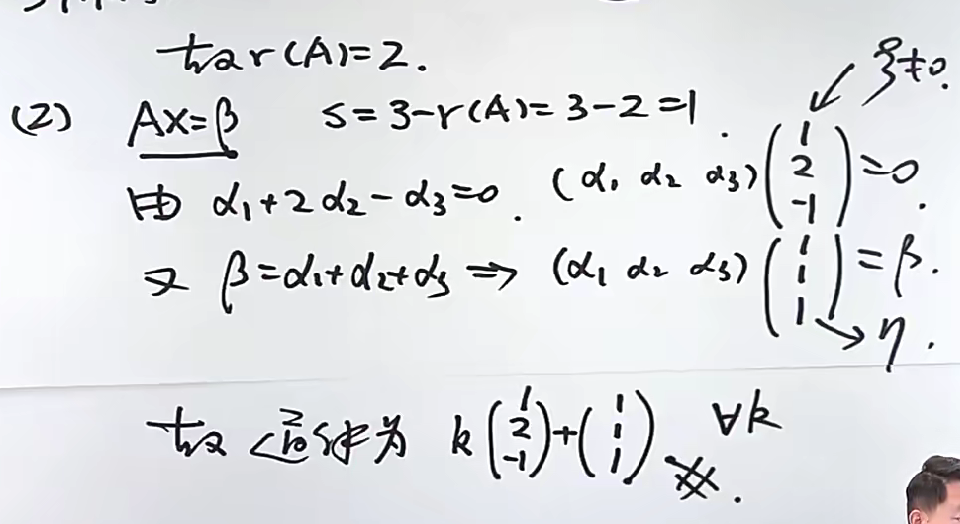 故r(A)=2.
(2) AX=β s=3-r(A)=3-2=1. ξ≠0.
由 α₁+2α₂-α₃=0. (α₁ α₂ α₃)(1 2 -1)=0.
又 β=α₁+α₂+α₃ ⇒ (α₁ α₂ α₃)(1 1 1)=β.
η.
故通解为 k(1 2 -1)+(1 1 1) ∀k